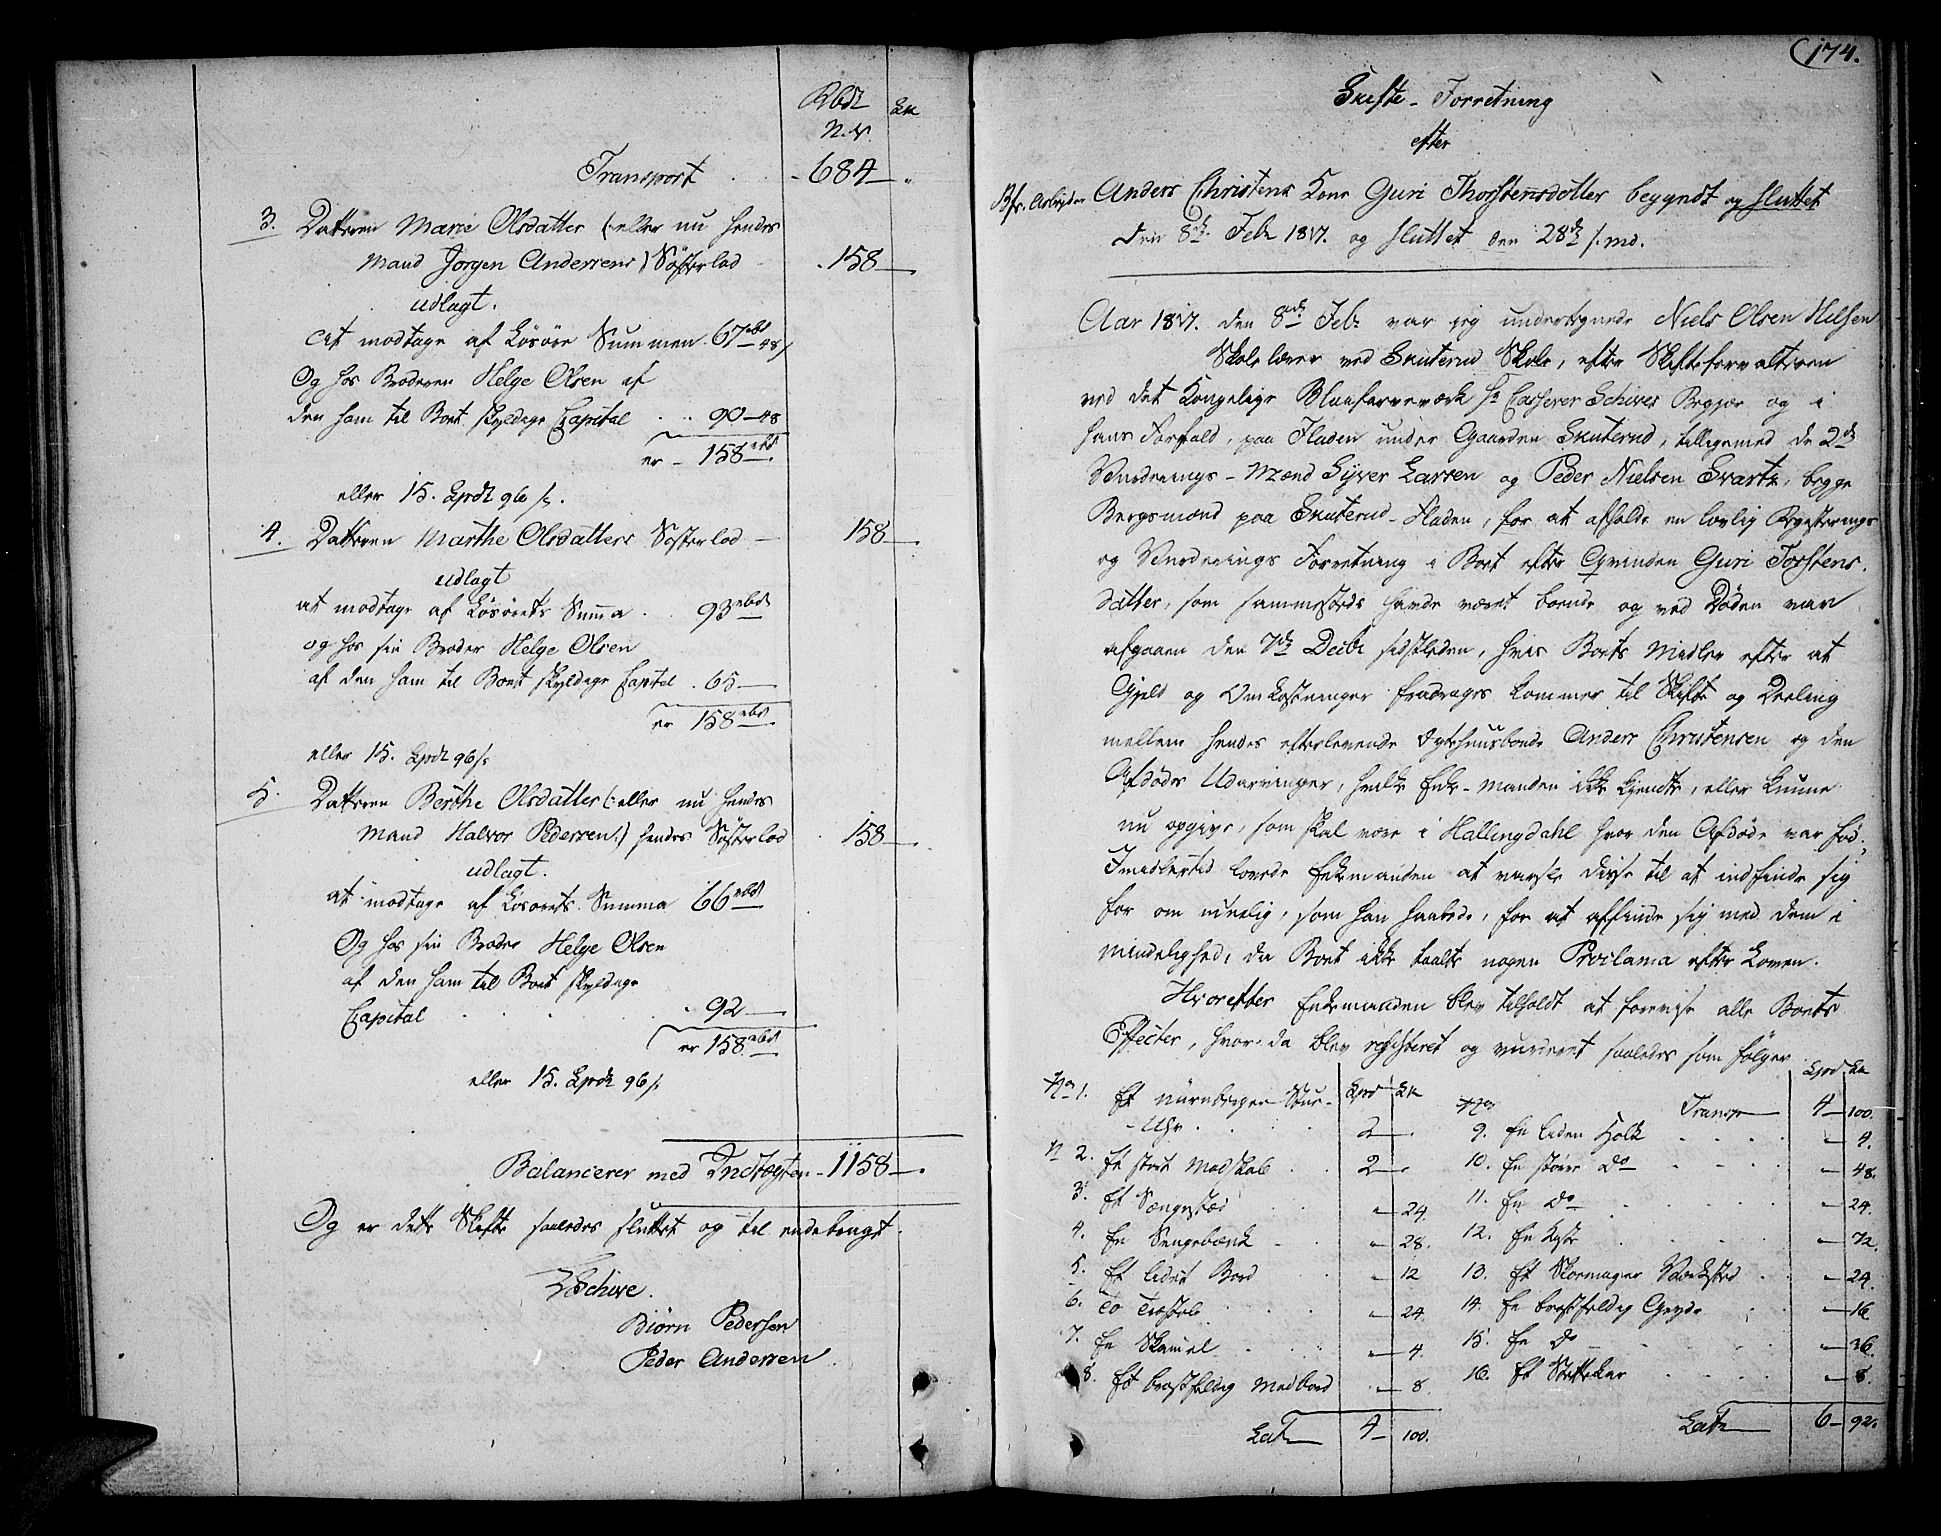 Rbdl Sk
N.V.
Transport - 684 - "
3. Datteren Marie Olsdatter (: eller nu hendes
Mand Jørgen Andersens) Søsterlod - 158 -
udlagt.
At modtage af Løsøre Summen 67 rbd 48 s
Og hos Broderen Helge Olsen af
den ham til Boet skyldige Capital 90 - 48
er - 158 rbd.
eller 15. Spdl 96 s.
4. Datteren Marthe Olsdatters Søsterlod - 158 -
udlagt
at modtage af Løsørets Suma 93 rbdl
og hos sin Broder Helge Olsen
af den ham til Boet skyldige Capital 65 -
er 158 rbd.
eller 15. Spdl 96 s.
5. Datteren Berthe Olsdatter (: eller nu hendes
Mand Halvor Pedersens:) hendes Søsterlod 158 -
udlagt.
at modtage af Løsørets Summa 66 rbdl
Og hos sin Broder Helge Olsen
af den ham til Boet skyldige
Capital 92 -
er 158 rbd
eller 15. Spdl 96 s.
Balancerer med Indtægten - 1158 -
Og er dette Skifte saaledes sluttet og til endebragt.
Schive.
Biørn Pedersen
Peder Andersen
174.
Skifte - Forretning
efter
Anders Christens Kone Guri Thorstensdotter begyndt og sluttet
den 8de Feb. 1817. og sluttet den 28de s. md.
Aar 1817. den 8de Feb. var jeg undertegnede Niels Olsen
Skolelærer ved Skuterud Skole, efter Skifteforvalteren
ved det Kongelige Blaafarveværk Hr Casserer Schives Begjær og i
hans Forfald, paa Fladen under Gaarden Skuterud, tilligemed de 2de
Vurderings - Mænd Syver Larsen og Peder Nielsen Svarte, begge
Bergsmænd paa Skuterud - Fladen, for at afholde en lovlig Registerings
og Vurderings Forretning i Boet efter Qvinden Guri Torstens
datter, som sammesteds havde været boende og ved Døden var
afgaaen den 7de Decbr sidstleden, hvis Boets Midler efter at
Gjeld og Omkostninger fradrages kommer til Skifte og Deeling
mellem hendes efterlevende Ægtehuusbonde Anders Christensen og den
Afdødes Udarvinger, hvilke Enke-manden ikke kjendte, eller kunne
nu opgive, som skal være i Hallingdahl hvor den Afdøde var fød;
Imidlertid lovede Enkemanden at varsle disse til at indfinde sig
for om muelig, som han haabede, for at affinde sig med dem i
Mindelighed, da Boet ikke taalte nogen Proclama efter Loven.
Hvorefter Enkemanden blev tilholdt at forevise alle Boets
Effecter, hvor da blev registeret og vurderet saaledes som følger
No 1. Et nürnberger Stue- Spd Sk
- Uhr 2 -
N 2. Et stort Madskab 2 -
3. Et Sengested " 24.
4. En Sengebænk " 28.
5. Et lidet Bord " 12
6. To Træstole " 24
7. En Skamel " 4.
8. Et brøstfeldig Madbord " 8.
Lat 4 - 100.
Spd Sk
No Transp 4 - 100.
9. En liden Holk " 4.
10. En større Do " 48.
11. En Do " 24.
12. En Kiste " 72.
13. Et Skomager Værksted " 24.
14. En brøstfeldig Gryde " 16.
15. En Do " 36.
16. Et Støttekar " 8.
Lat 6 - 92.